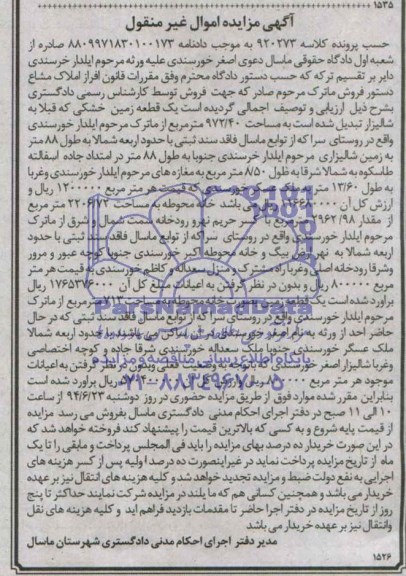 ۱۵۳۵
آگهی مزایده اموال غیر منقول
حسب پرونده کلاسه ۹۲۰۲۷۳ به موجب دادنامه ۸۸۰۹۹۷۱۸۳۰۱۰۰۱۷۳ صادره از
شعبه اول دادگاه حقوقی ماسال دعوی اصغر خورسندی علیه ورثه مرحوم ایلدار خرسندی
دایر بر تقسیم ترکه که حسب دستور دادگاه محترم وفق مقررات قانون افراز املاک مشاع
دستور فروش ماترک مرحوم صادر که جهت فروش توسط کارشناس رسمی دادگستری
بشرح ذیل ارزیابی و توصیف اجمالی گردیده است یک قطعه زمین خشکی که قبلا به
شالیزار تبدیل شده است به مساحت ۹۷۲/۴۰ مترمربع از ماترک مرحوم ایلدار خورسندی
واقع در روستای سرا که از توابع ماسال فاقد سند ثبتی با حدود اربعه شمالا به طول ۸۸ متر
به زمین شالیزاری مرحوم ایلدار خرسندی جنوبا به طول ۸۸ متر در امتداد جاده اسفالته
طاسکوه به شمالا شرقا به طول ۸/۵۰ متر مربع به مغازه های مرحوم ایلدار خورسندی وغربا
به طول ۱۳/۶۰ متر به ملک که قیمت هر متر مربع ۱۲۰۰۰۰۰ ریال و
ارزش کل آن ریال می باشد خانه محوطه به مساحت ۲۲۰۶/۷۲ متر مربع
از مقدار ۲۹۶۲/۹۸ متر مربع با کسر حریم نهر و رودخانه سمت شمال و شرق از ماترک
مرحوم ایلدار خورسندی واقع در روستای سرا که از توابع ماسال فاقد سند ثبتی با حدود
اربعه شمالا به نهر و خانه محوطه اکبر خورسندی جنوبا کوچه عبور و مرور
وشرقا رودخانه اصلی وغربا راه مشترک و منزل سعداله و کاظم خورسندی به قیمت هر متر
مربع ۸۰۰۰۰۰ ریال و بدون در نظر گرفتن به اعیانات مبلغ کل آن ۱۷۶۵۳۷۶۰۰۰ ریال
برآورد شده است یک قطعه زمین بصورت خانه محوطه به مساحت ۷۱۳ متر مربع از ماترک
مرحوم ایلدار خورسندی واقع در روستای سرا که از توابع ماسال فاقد سند ثبتی که در حال
حاضر احد از ورثه به نام اصغر خورسندی در آن ساکن می باشند با حدود اربعه شمالا
ملک عسگر خورسندی جنوبا ملک سعداله خورسندی شرقا جاده و کوچه اختصاصی
وغربا شالیزار اصغر خورسندی که با توجه به وضعیت فعلی وبدون در نظر گرفتن به اعیانات
موجود هر متر مربع ریال برآورد شده است
بنابراین مقرر شده موارد فوق از طریق مزایده حضوری در روز دوشنبه ۹۴/۶/۲۳ از ساعت
۱۰ الی ۱۱ صبح در دفتر اجرای احکام مدنی دادگستری ماسال بفروش می رسد مزایده
از قیمت پایه شروع و به کسی که بالاترین قیمت را پیشنهاد کند فروخته خواهد شد که
در این صورت خریدار ده درصد بهای مزایده را باید فی المجلس پرداخت و مابقی را تا یک
ماه از تاریخ مزایده پرداخت نماید در غیر اینصورت ده درصد اولیه پس از کسر هزینه های
اجرایی به نفع دولت ضبط و مزایده تجدید خواهد شد و کلیه هزینه های انتقال نیز بر عهده
خریدار می باشد و همچنین کسانی هم که مایلند در مزایده شرکت نمایند حداکثر تا پنج
روز از تاریخ مزایده در دفتر اجرا حاضر تا مقدمات بازدید فراهم آید و کلیه هزینه های نقل
وانتقال نیز بر عهده خریدار می باشد
مدیر دفتر اجرای احکام مدنی دادگستری شهرستان ماسال
۱۵۲۶
ParsNamadData
پایگاه اطلاع رسانی مناقصه و مزایده
۰۲۱-۸۸۳۴۹۶۷۰-۵